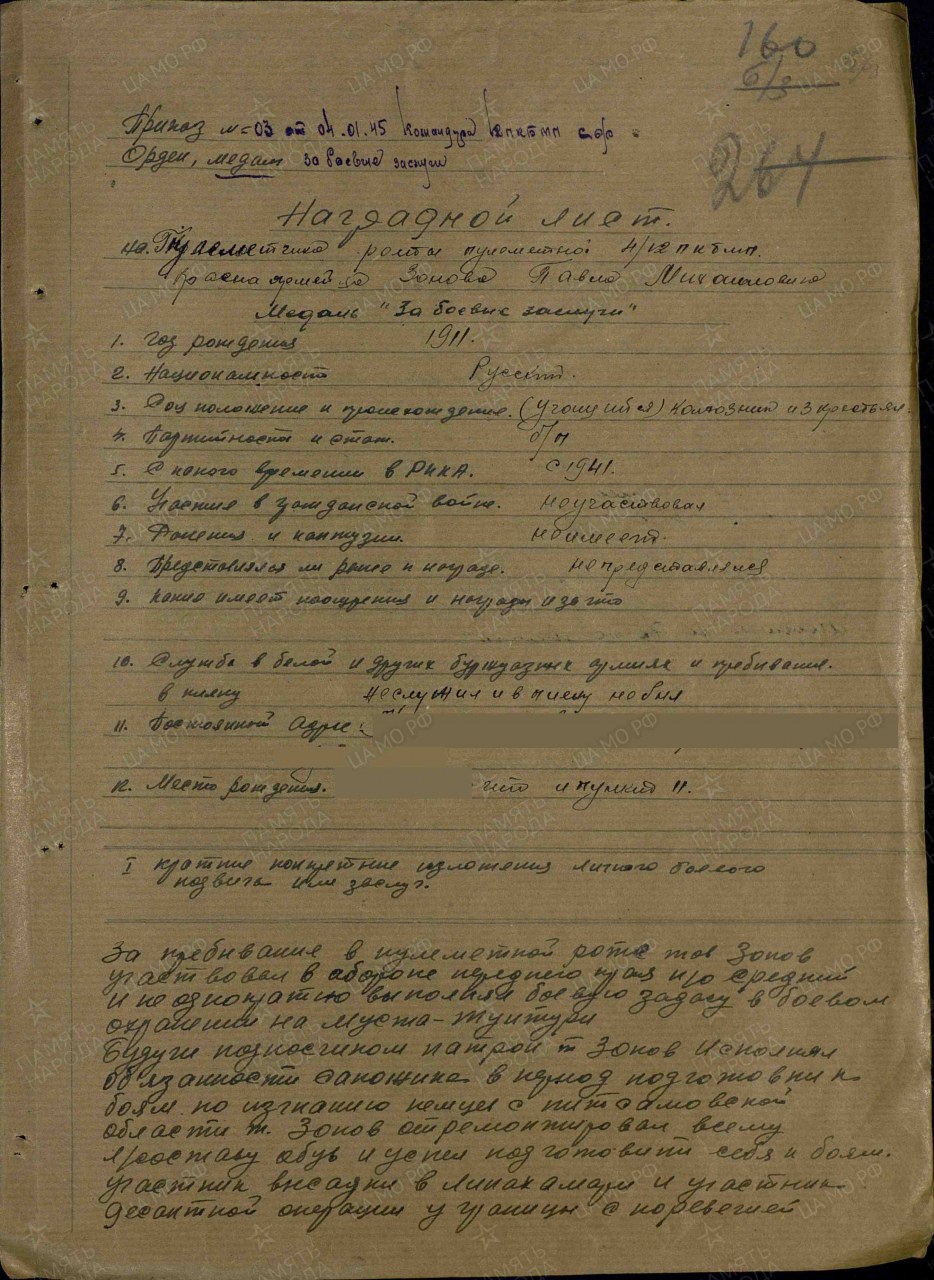 160
6/з
264
Приказ №=03 от 04.01.45 Командира 12 ПКБМП сф
Орден, медаль за боевые заслуги
Наградной лист.
на Пулеметчика роты пулеметной 4/12 пкбмп.
Красноармейца Зонова Павла Михайловича
Медаль "За боевые заслуги"
1. Год рождения 1911.
2. Национальност Русский.
3. Соц положение и происхождение. (учащийся) колхозник из крестьян
4. Партитность и стаж. б/п
5. С какого времении в РККА. с 1941.
6. Участие в гражданской войне. неучаствовал
7. Ранения и контузии. неимеет.
8. Представлялся ли ранее к награде. непредставлялся
9. Какие имеет поощрения и награды и за что
10. Служба в белой и других буржуазных армиях и пребивание.
в плену неслужил и в плену небыл
11. Постоянной адрес
12. Место рождения. что и пункт 11.
I краткие конкретние изложения личного боевого
подвига или заслуг.
За пребивание в пулеметной роте тов Зонов
участвовал в обороне переднего края п/о средний
и не однократно выполнял боевую задачу в боевом
охранении на Муста-Тунтури
Будучи подносчиком патрон т Зонов исполнял
об'язанности сапожника в период подготовки к
боям по изгнанию немцев с питсамовской
области т. Зонов отремонтировал всему
л/составу обувь и успел подготовить себя к боям.
участник высадки в Линахамари и участник
десантной операции у границы с норвегией